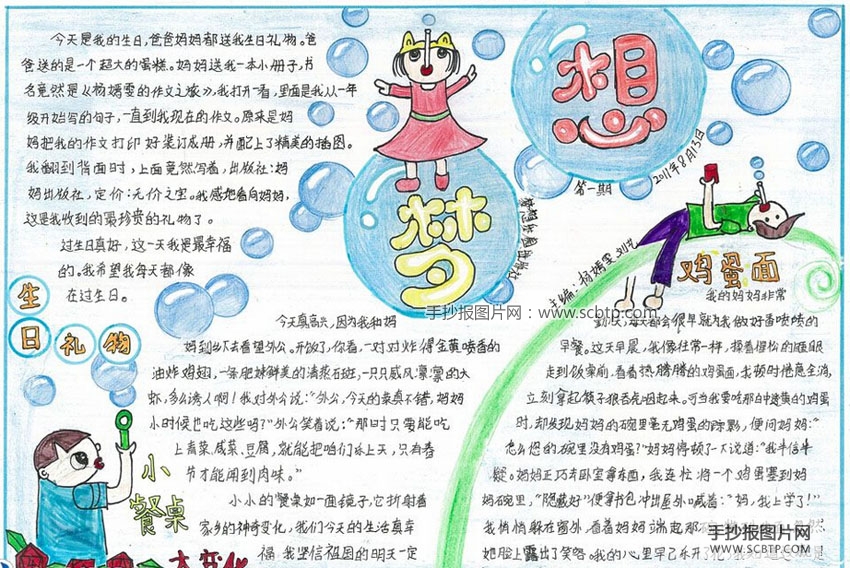 梦想
第一期
2011年8月13日
主编：杨嫣雯 刘艺
生日礼物
今天是我的生日，爸爸妈妈都送我生日礼物。爸
爸送的是一个超大的蛋糕。妈妈送我一本小册子，书
名竟然是《杨嫣雯的作文之旅》，我打开一看，里面是我从一年
级开始写的句子，一直到我现在的作文。原来是妈
妈把我的作文打印好装订成册，并配上了精美的插图。
我翻到背面时，上面竟然写着，出版社：妈
妈出版社，定价：无价之宝。我感把看向妈妈，
这是我收到的最珍贵的礼物了。
过生日真好，这一天我是最幸福
的。我希望我每天都像
在过生日。
小餐桌
大变化
今天真高兴，因为我和妈
妈到乡下去看望外公。开饭了，你看，一对对炸得金黄喷香的
油炸鸡翅，一条肥辣鲜美的清蒸石斑，一只只威风凛凛的大
虾，多么诱人啊！我对外公说：“外公，今天的菜真不错，妈妈
小时候也吃这些吗？”外公笑着说：“那时只要能吃
上青菜、咸菜、豆腐，就能把咱们乐上天，只有春
节才能闻到肉味。”
小小的餐桌如一面镜子，它折射着
家乡的神奇变化，我们今天的生活真幸
福。我坚信祖国的明天一定
鸡蛋面
我的妈妈非常
勤快，每天都会很早就为我做好香喷喷的
早餐。这天早晨，我像往常一样，揉着惺忪的睡眼
走到饭桌前。看着热腾腾的鸡蛋面，我顿时倦意全消，
立刻拿起筷子狼吞虎咽起来。可当我要吃那白中透黄的鸡蛋
时，却发现妈妈的碗里毫无鸡蛋的踪影，便问妈妈：“
怎么您的碗里没有鸡蛋？”妈妈停顿了一下说道：“我半信半
疑。妈妈正巧去卧室拿东西，我连忙将一个鸡蛋塞到妈
妈碗里，“隐蔽好”便拿书包冲出屋外喊着：“妈，我上学了！”
我悄悄躲在窗外，看着妈妈端起那
她脸上露出了笑容。我的心里早已乐开了花
手抄报图片网：www.scbtp.com
手抄报图片网
WWW.SCBTP.COM